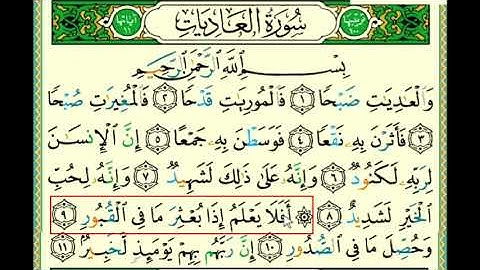 سُورَةُ الْعَادِيَاتِ
بِسْمِ اللَّهِ الرَّحْمَٰنِ الرَّحِيمِ
وَالْعَادِيَاتِ ضَبْحًا ١ فَالْمُورِيَاتِ قَدْحًا ٢ فَالْمُغِيرَاتِ صُبْحًا
٣ فَأَثَرْنَ بِهِ نَقْعًا ٤ فَوَسَطْنَ بِهِ جَمْعًا ٥ إِنَّ الْإِنسَانَ
لِرَبِّهِ لَكَنُودٌ ٦ وَإِنَّهُ عَلَىٰ ذَٰلِكَ لَشَهِيدٌ ٧ وَإِنَّهُ لِحُبِّ
الْخَيْرِ لَشَدِيدٌ ٨ ۞ أَفَلَا يَعْلَمُ إِذَا بُعْثِرَ مَا فِي الْقُبُورِ ٩
وَحُصِّلَ مَا فِي الصُّدُورِ ١٠ إِنَّ رَبَّهُم بِهِمْ يَوْمَئِذٍ لَّخَبِيرٌ ١١